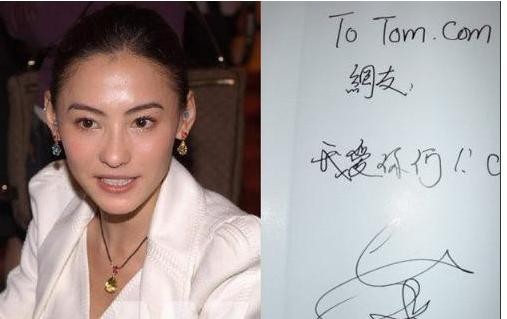 To Tom.Com
網友,
我愛你们!!